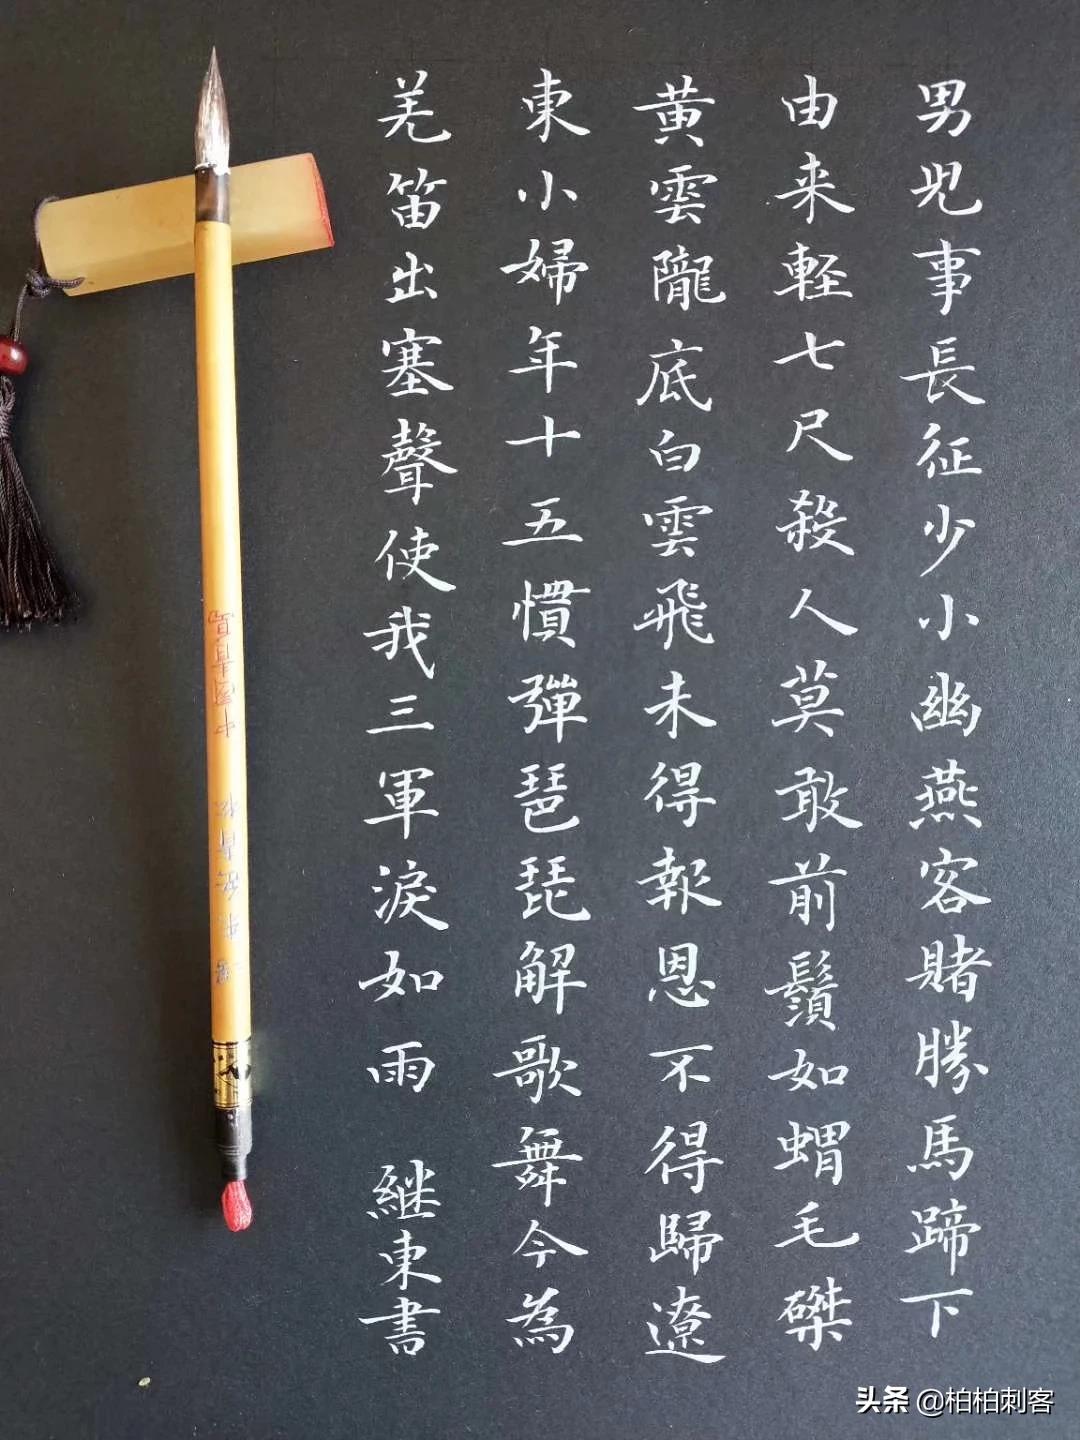 男兒事長征少小幽燕客賭勝馬蹄下
由来輕七尺殺人莫敢前鬚如蝟毛磔
黄雲隴底白雲飛未得報恩不得歸遼
東小婦年十五慣彈琵琶解歌舞今為
羌笛出塞聲使我三軍淚如雨 継東書
头条 @柏柏刺客